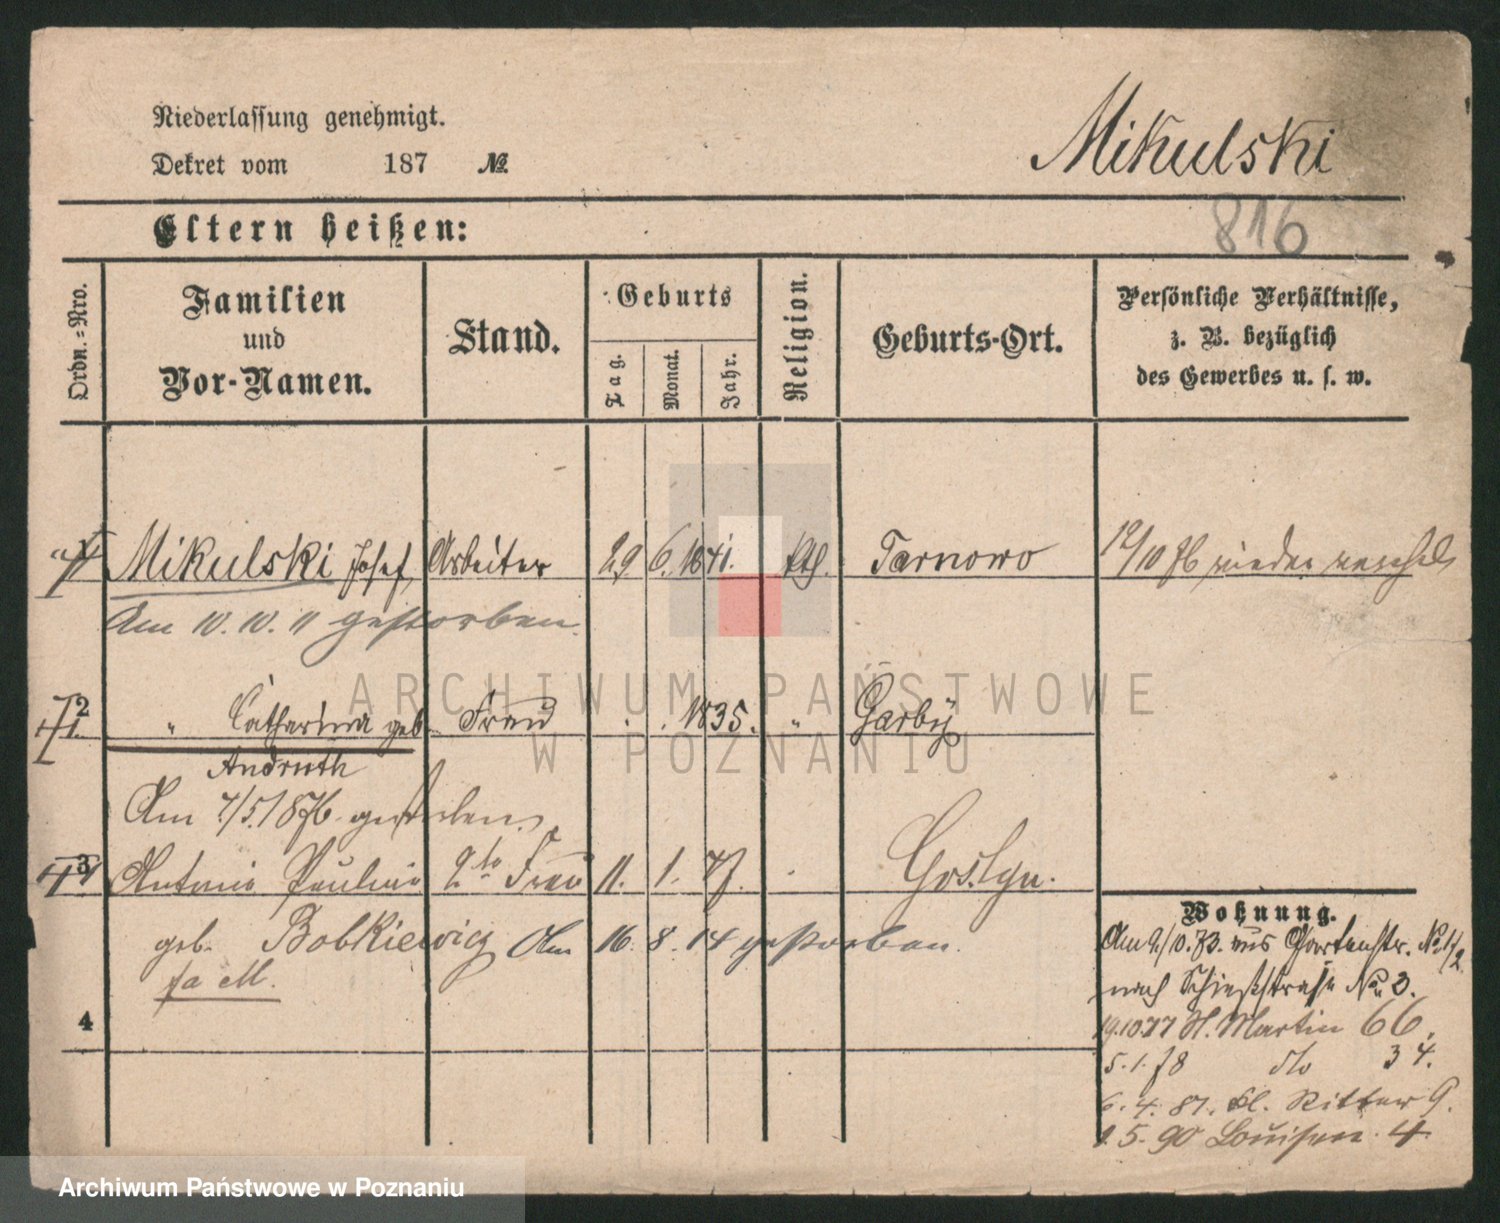 Niederlassung genehmigt.
Dekret vom 187 №
Mikulski
Eltern heißen:
816
Ordn.=Nro.
Familien
und
Vor-Namen.
Stand.
Geburts
Tag.
Monat.
Jahr.
Religion.
Geburts-Ort.
Persönliche Verhältnisse,
z. B. bezüglich
des Gewerbes u. s. w.
Mikulski Josef Arbeiter 29 6. 1841. kth. Tarnowo 12/10 76 wieder
Am 10. 10. 11 gestorben.
ARCHIWUM PAŃSTWOWE
W POZNANIU
2 " Catharina geb. Frau . . 1835. " Garby
Andruth
Am 7/5. 1876 gestorben
3 Antonie Pauline 2te Frau 11. 1. 47. . Gostyn.
geb. Bobkiewicz Am 16. 8. 14 gestorben.
fa M.
4
Wohnung.
Am 9/10. 73. aus Gartenstr. No 1/2
nach Schießstraße No 3.
19.10.77 St. Martin 66.
5. 1. 78 dto 34.
6. 4. 81. Kl. Ritter 9.
1. 5. 90 Louisen. 4
Archiwum Państwowe w Poznaniu